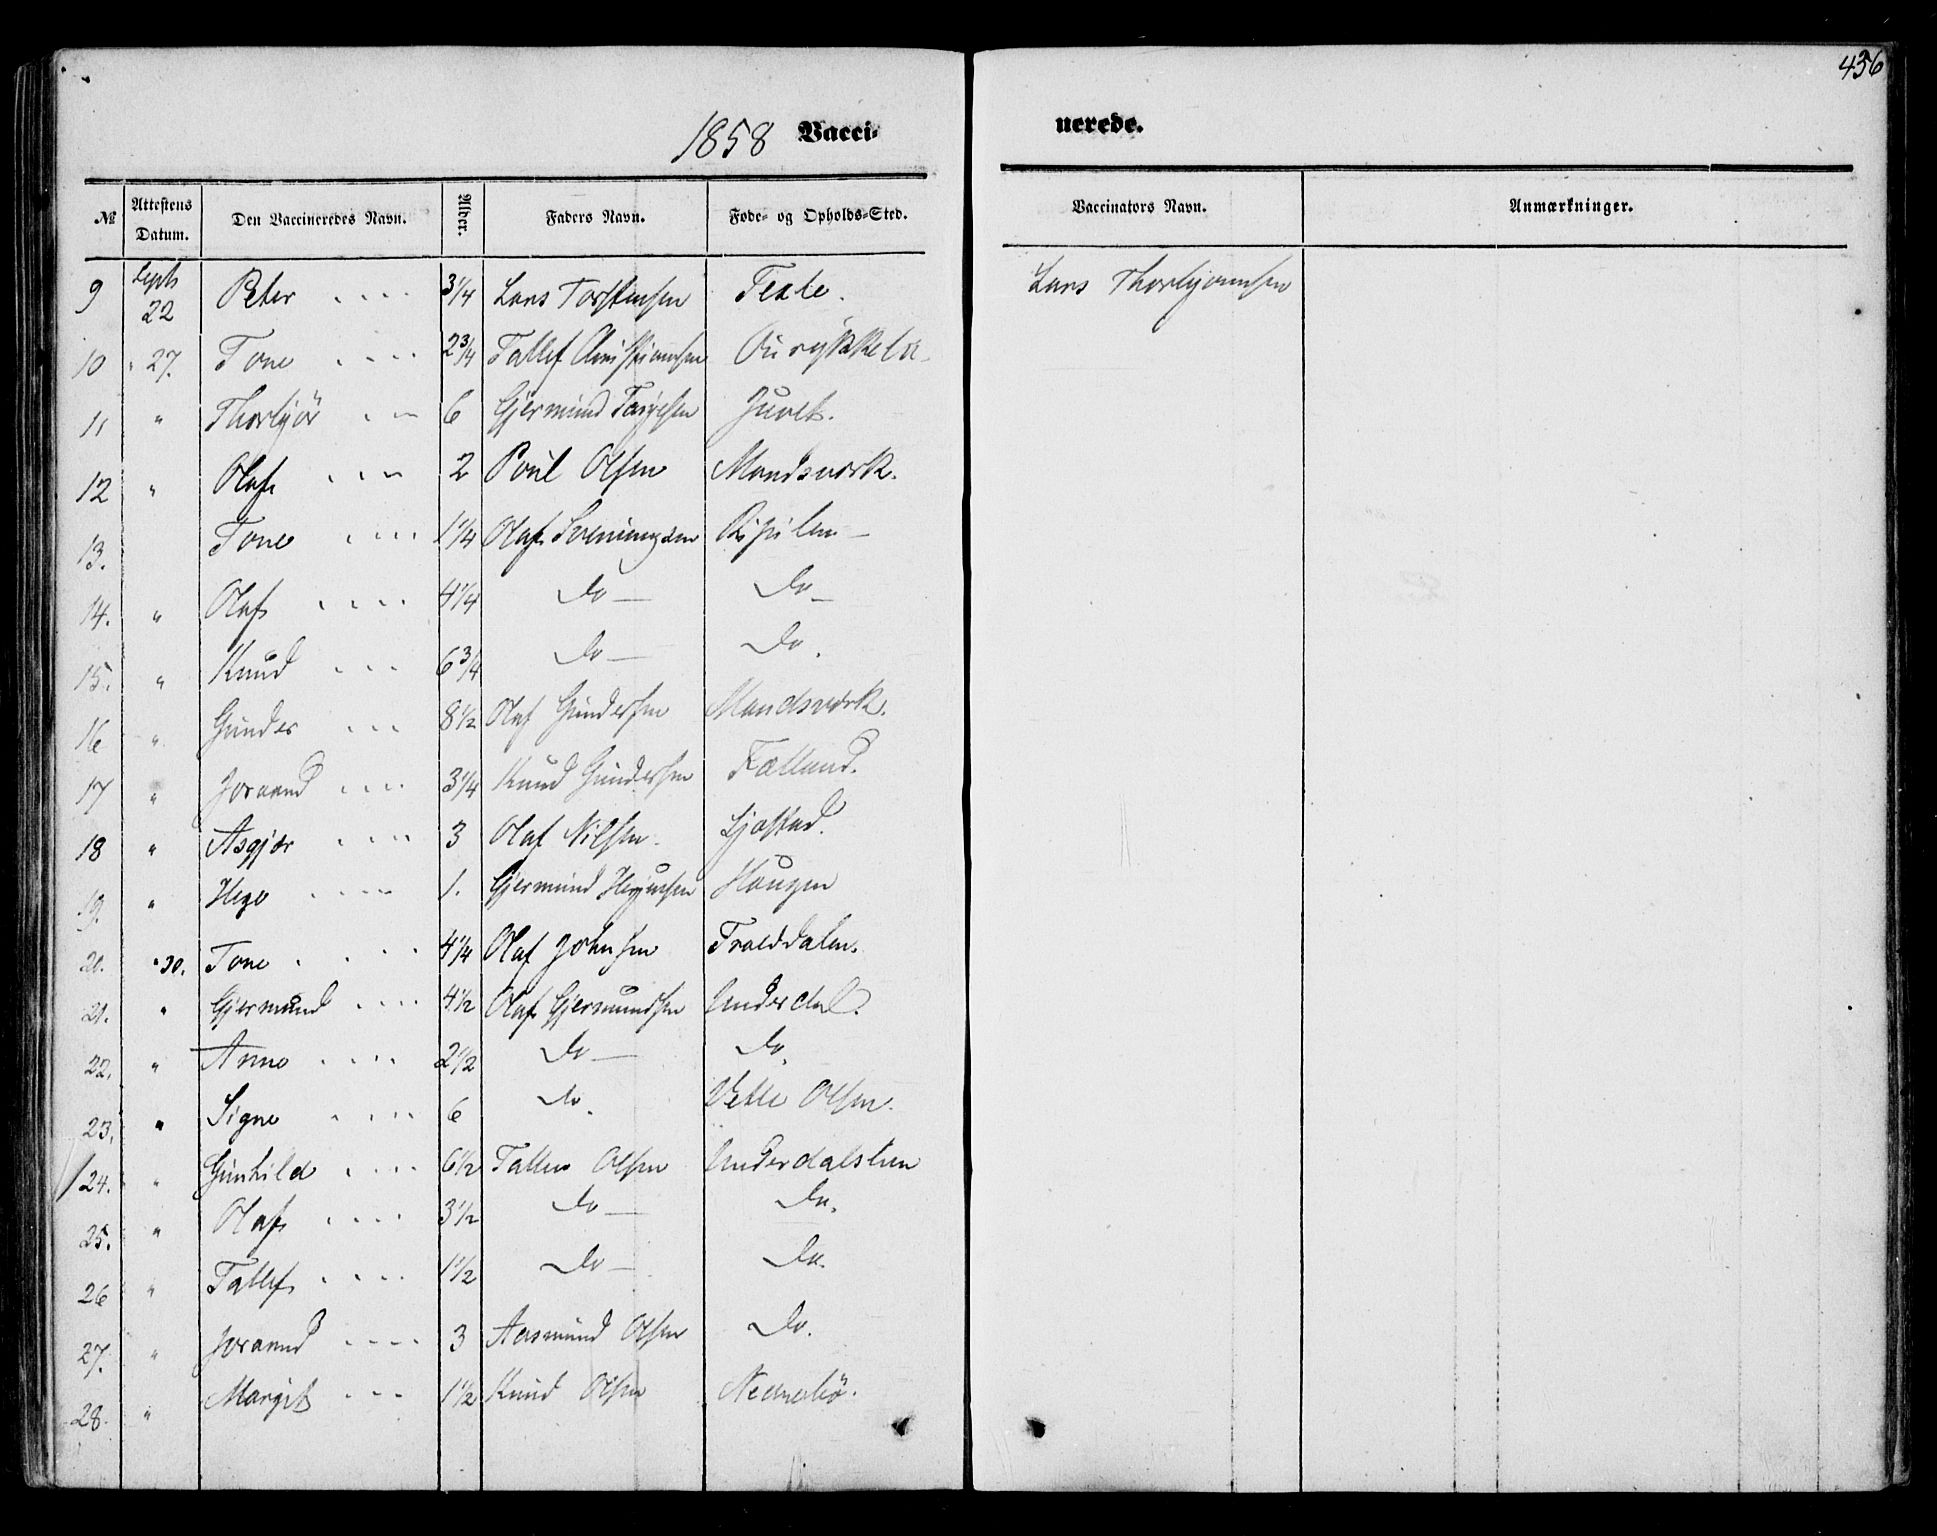 436
1858 Vacci-
nerede.
№ Attestens Datum. Den Vaccineredes Navn. Alder. Faders Navn. Føde- og Opholds-Sted. Vaccinators Navn. Anmærkninger.
9 Septb 22 Peter 3 1/4 Lars Torstensen Lars Thorbjørnsen
10 " 27. Tone 2 3/4 Tallef Christiansen
11 " Thorbjør 6 Gjermund Juvet.
12 " Olaf 2 Poul Olsen Mandsværk.
13. Tone 1 1/4 Olaf Sveningsen
14. " Olaf 4 1/4 Do — Do —
15. " Knud 6 3/4 Do — Do.
16 " Gunder 8 1/2 Olaf Gundersen Mandsværk.
17 " Joraand 3 1/4 Knud Gundersen Fælland.
18 " Asgjør 3 Olaf Nilsen.
19. " Hege 1. Gjermund Haugen
20. " 30. Tone 4 1/4 Olaf Johnsen Trolddalen.
21. " Gjermund 4 1/2 Olaf Gjermundsen Underdal.
22. " Anne 2 1/2 Do — Do.
23. " Signe 6 Do. Vetle Olsen.
24. " Gunhild 6 1/2 Olsen
25. " Olaf 3 1/2 Do — Do.
26 " Tallef 1 1/2 Do — Do.
27. " Joraand 3 Aasmund Olsen Do.
28. " Margit 1 1/2 Knud Olsen Nedrebö.